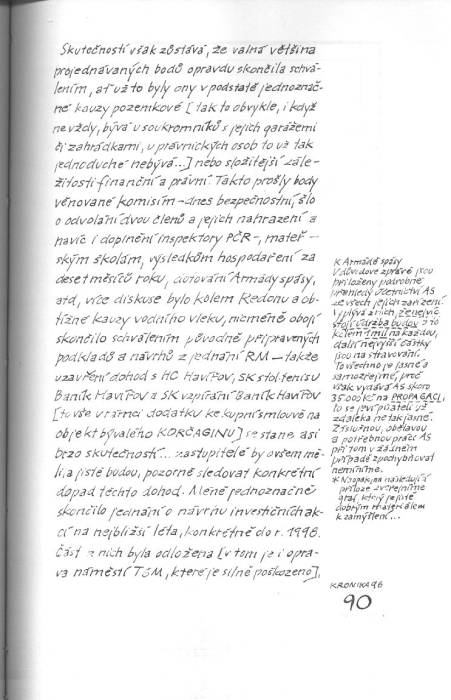 Skutečností však zůstává, že valná většina
projednávaných bodů opravdu skončila schvá-
lením, ať už to byly ony v podstatě jednoznač-
né kauzy pozemkové [tak to obvykle, i když
ne vždy, bývá u soukromníků s jejich garážemi
či zahrádkami, u právnických osob to už tak
jednoduché nebývá...] nebo složitější zále-
žitosti finanční a právní. Takto prošly body
věnované komisím - dnes bezpečnostní, šlo
o odvolání dvou členů a jejich nahrazení a
navíc i doplnění inspektory PČR -, mateř-
ským školám, výsledkům hospodaření za
deset měsíců roku, dotování Armády spásy,
atd, více diskuse bylo kolem Redonu a ob-
tížné kauzy vodního vleku, nicméně obojí
skončilo schválením původně připravených
podkladů a návrhů z jednání RM - takže
uzavření dohod s HC Havířov, SK stol. tenisu
Baník Havířov a SK vzpírání Baník Havířov
[to vše v rámci dodatku ke kupní smlouvě na
objekt bývalého KORČAGINU] se stane asi
brzo skutečností... zastupitelé by ovšem mě-
li, a jistě budou, pozorně sledovat konkrétní
dopad těchto dohod. Méně jednoznačně
skončilo jednání o návrhu investičních ak-
cí na nejbližší léta, konkrétně do r. 1998.
Část z nich byla odložena [v tom je i opra-
va náměstí TGM, které je silně poškozeno],
K Armádě spásy
V důvodové zprávě jsou
přiloženy podrobné
přehledy účetnictví AS
ze všech jejich zařízení.
Vyplývá z nich, že nejvíc
stojí údržba budov, a to
kolem 1 mil na každou,
další nejvyšší částky
jsou na stravování.
To všechno je jasné a
samozřejmé, proč
však vydává AS skoro
35.000 Kč na PROPAGACI,
to se jeví pisateli již
zdaleka ne tak jasné.
Záslužnou, obětavou
a potřebnou práci AS
při tom v žádném
případě zpochybňovat
nemíníme.
* Naopak, na následující
příloze zveřejníme
graf, který je jistě
dobrým materiálem
k zamyšlení...
KRONIKA 96
90